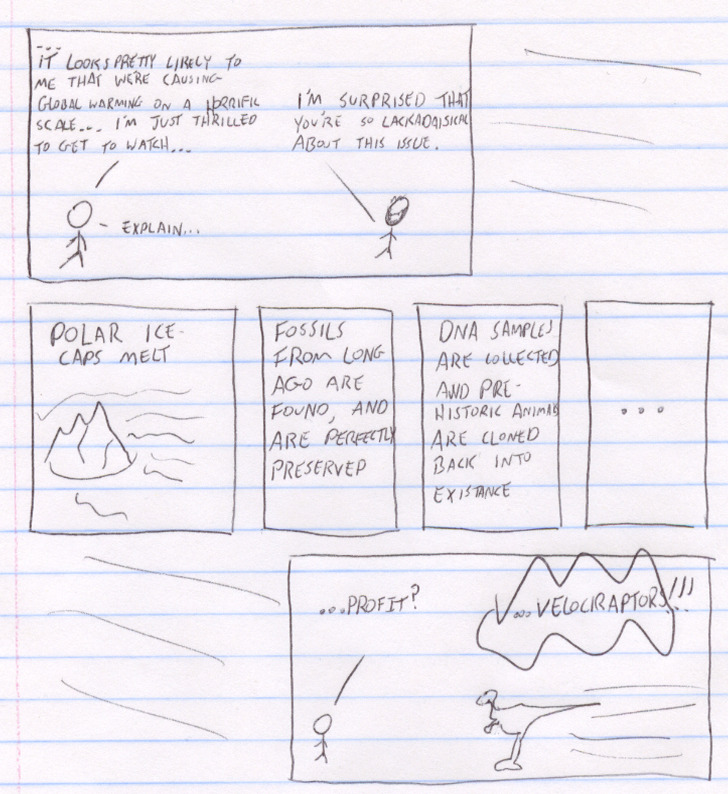 ...IT LOOKS PRETTY LIKELY TO
ME THAT WERE CAUSING
GLOBAL WARMING ON A HORRIFIC
SCALE... I'M JUST THRILLED
TO GET TO WATCH...
I'M SURPRISED THAT
YOU'RE SO LACKADAISICAL
ABOUT THIS ISSUE.
- EXPLAIN...
POLAR ICE-
CAPS MELT
FOSSILS
FROM LONG
AGO ARE
FOUND, AND
ARE PERFECTLY
PRESERVED
DNA SAMPLES
ARE COLLECTED
AND PRE-
HISTORIC ANIMALS
ARE CLONED
BACK INTO
EXISTANCE
...
...PROFIT?
V...VELOCIRAPTORS!!!